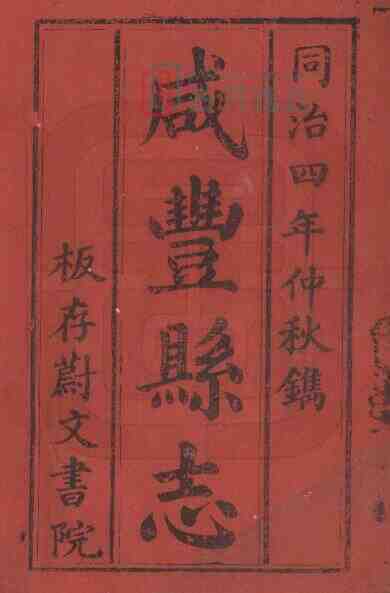 同治四年仲秋鐫
咸豐縣志
板存蔚文書院